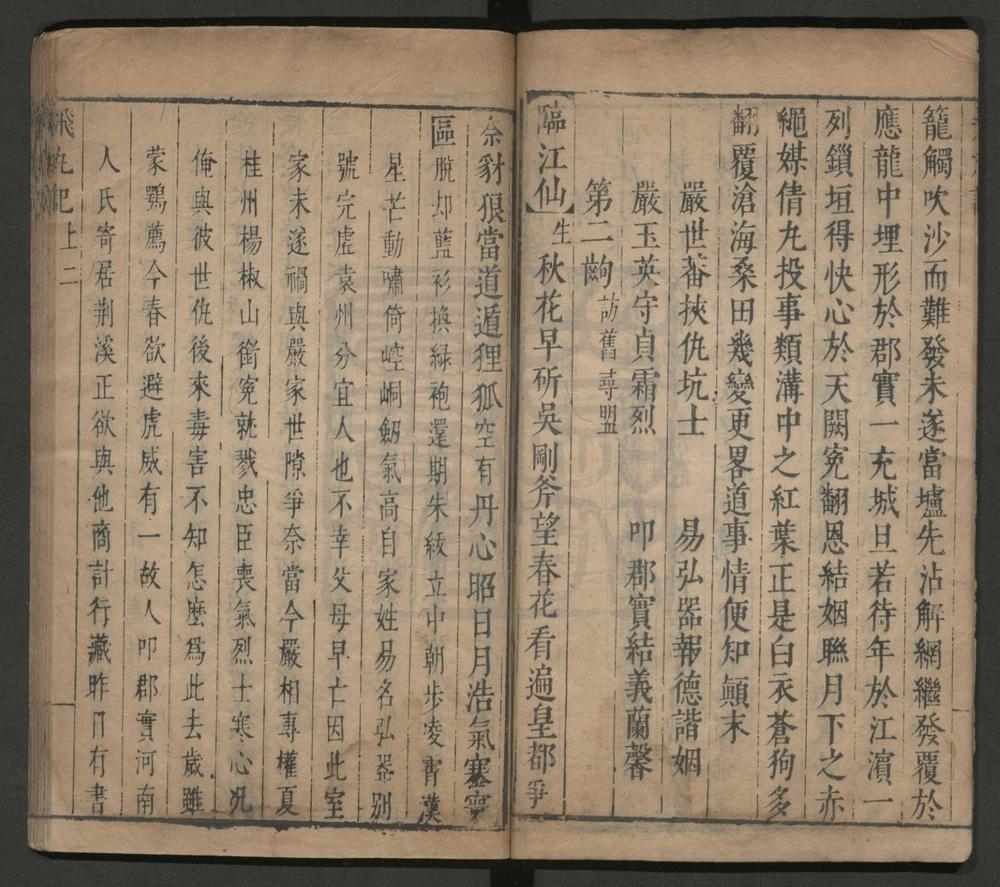 籠觸吹沙而難發未遂當壚先沾解網繼發覆於
應龍中埋形於郡實一充城旦若待年於江濱一
列鎖垣得快心於天闕寃翻恩結姻聯月下之赤
繩媒倩九投事類溝中之紅葉正是白衣蒼狗多
翻覆滄海桑田幾變更畧道事情便知顛末
嚴世蕃挾仇坑士 易弘器報德諧姻
嚴玉英守貞霜烈 叩郡實結義蘭馨
第二齣 訪舊尋盟
臨江仙】生秋花早斫吳剛斧望春花看遍皇都爭
奈豺狼當道遁狸狐空有丹心昭日月浩氣塞寰
區脫却藍衫換綠袍還期朱紱立中朝步凌霄漢
星芒動嘯倚崆峒劔氣高自家姓易名弘器别
號完虛袁州分宜人也不幸父母早亡因此室
家未遂禍與嚴家世隙爭奈當今嚴相專權夏
桂州楊椒山銜寃就戮忠臣喪氣烈士寒心况
俺與彼世仇後來毒害不知怎麽爲此去歲雖
蒙鶚薦今春欲避虎威有一故人叩郡實河南
人氏寄居荆溪正欲與他商計行藏昨日有書
飛丸記上 二